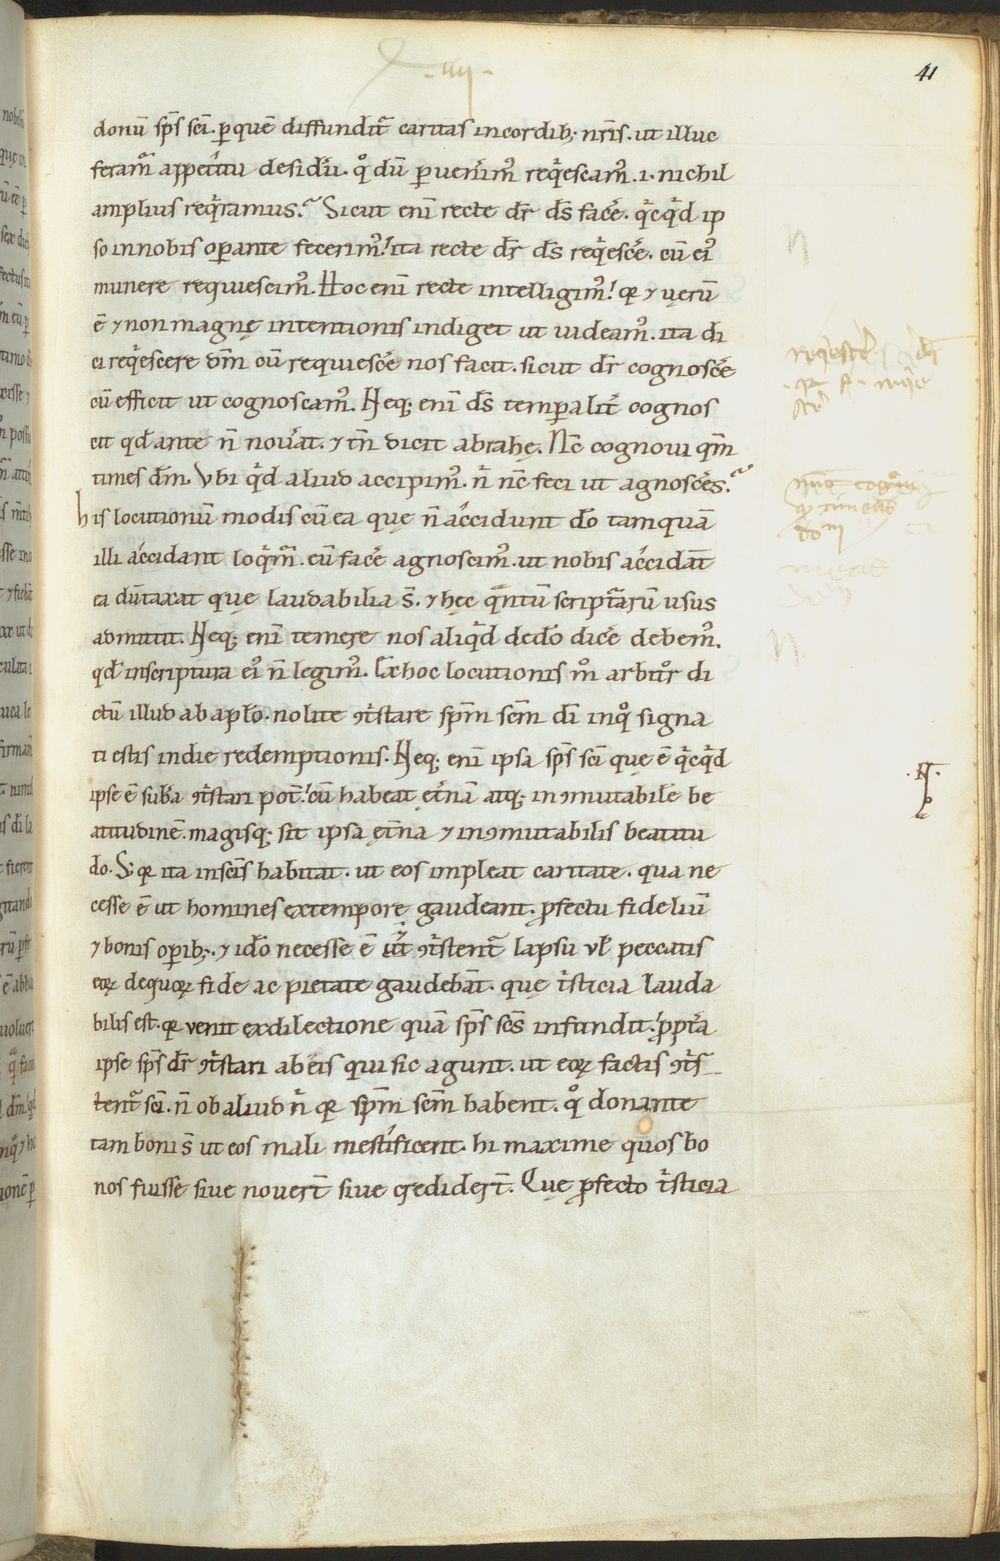 ·iiij·
41
donū sp̄s sc̄i. ꝑ quē diffundit᷑ caritas in cordib; nr̄is. ut illuc
feram᷒ appetitu desid̾ii. qͦ dū ꝑuenim᷒ reqͥescam᷒ .i. nichil
amplius reqͥramus. Sicut enī recte dr̄ ds̄ facē. qͥcqͥd ip
so in nobis oꝑante fecerim᷒. ita recte dr̄ ds̄ reqͥescē. cū ei᷒
munere requiescim᷒. Hoc enī recte intelligim᷒. qꝛ ⁊ uerū
ē ⁊ non magnę intentionis indiget ut uideam᷒. ita di
ci reqͥescere dm̄ cū requiescē nos facit. sicut dr̄ cognoscē
cū efficit ut cognoscam᷒. Neq; enī ds̄ temꝑalit̄ cognos
cit qd̄ ante n̄ nouat̾. ⁊ tn̄ dicit abrahę. Nc̄ cognoui qm̄
times dm̄. Vbi qͥd aliud accipim᷒. nͥ nc̄ feci ut agnoscēs.
his locutionū modis cū ea quę n̄ accidunt dō tamquā
illi accidant loqͥm᷒. eū facē agnoscim᷒. ut nobis accidāt
ea dūtaxat quę laudabilia s̄. ⁊ hęc qͣntū scripturarū usus
admittit. Neq; enī temere nos aliqͥd de dō dicē debem᷒.
qd̄ in scriptura ei᷒ n̄ legim᷒. Ex hoc locutionis mͦ arbitͦr di
ctū illud ab aplō. nolite ꝯtͥstare spm̄ scm̄ di̅ in qͦ signa
ti estis in die redemptionis. Neq; enī ipsa sp̄s sc̄i que ē qͥcqͥd
ipse ē suba̅ ꝯtͥstari pot̄. cū habeat ęt̾nā atq; inꝯmutabilē be
atitudinē. magisq; sit ipsa ęt̾na ⁊ inꝯmutabilis beatitu
do. S; qꝛ ita in sc̄is habitat. ut eos impleat caritate. qua ne
cesse ē ut homines ex tempore gaudeant. ꝓfectu fideliū
⁊ bonis oꝑib;. ⁊ idō necesse ē ut ꝯtͥstent᷑ lapsu ul̄ peccatis
eoꝝ de quoꝝ fide ac pietate gaudebāt. quę tͥsticia lauda
bilis est. qꝛ uenit ex dilectione quā sp̄s sc̄s infundit. ꝓpt̾a
ipse sp̄s dr̄ ꝯtͥstari ab eis qui sic agunt. ut eoꝝ factis ꝯtͥs
tent᷑ sc̄i. n̄ ob aliud nͥ qꝛ spm̄ scm̄ habent. qͦ donante
tam boni s̄ ut eos mali mestificent. hi maxime quos bo
nos fuisse siue nouer̄t siue credider̄t. Quę ꝓfecto tͥsticia